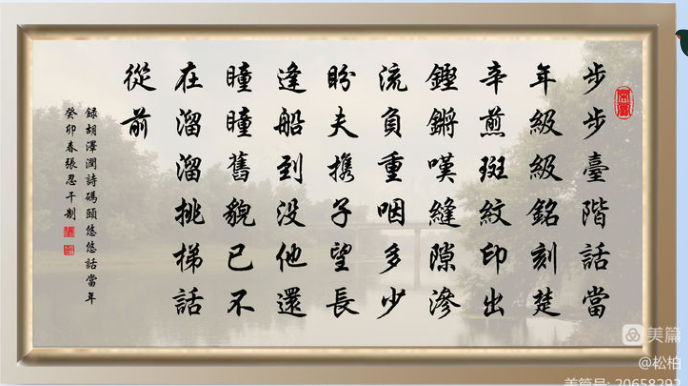 步步臺階話當
年級級銘刻楚
辛煎斑紋印出
鏗鏘嘆縫隙滲
流負重咽多少
盼夫携子望長
逢船到没他還
瞳瞳舊貌已不
在溜溜挑梯話
從前
録胡澤潤詩碼頭悠悠話當年
癸卯春張忍干制
美篇
@松柏
美篇号: 20658291